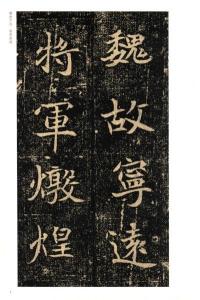 魏故寧遠
將軍燉煌